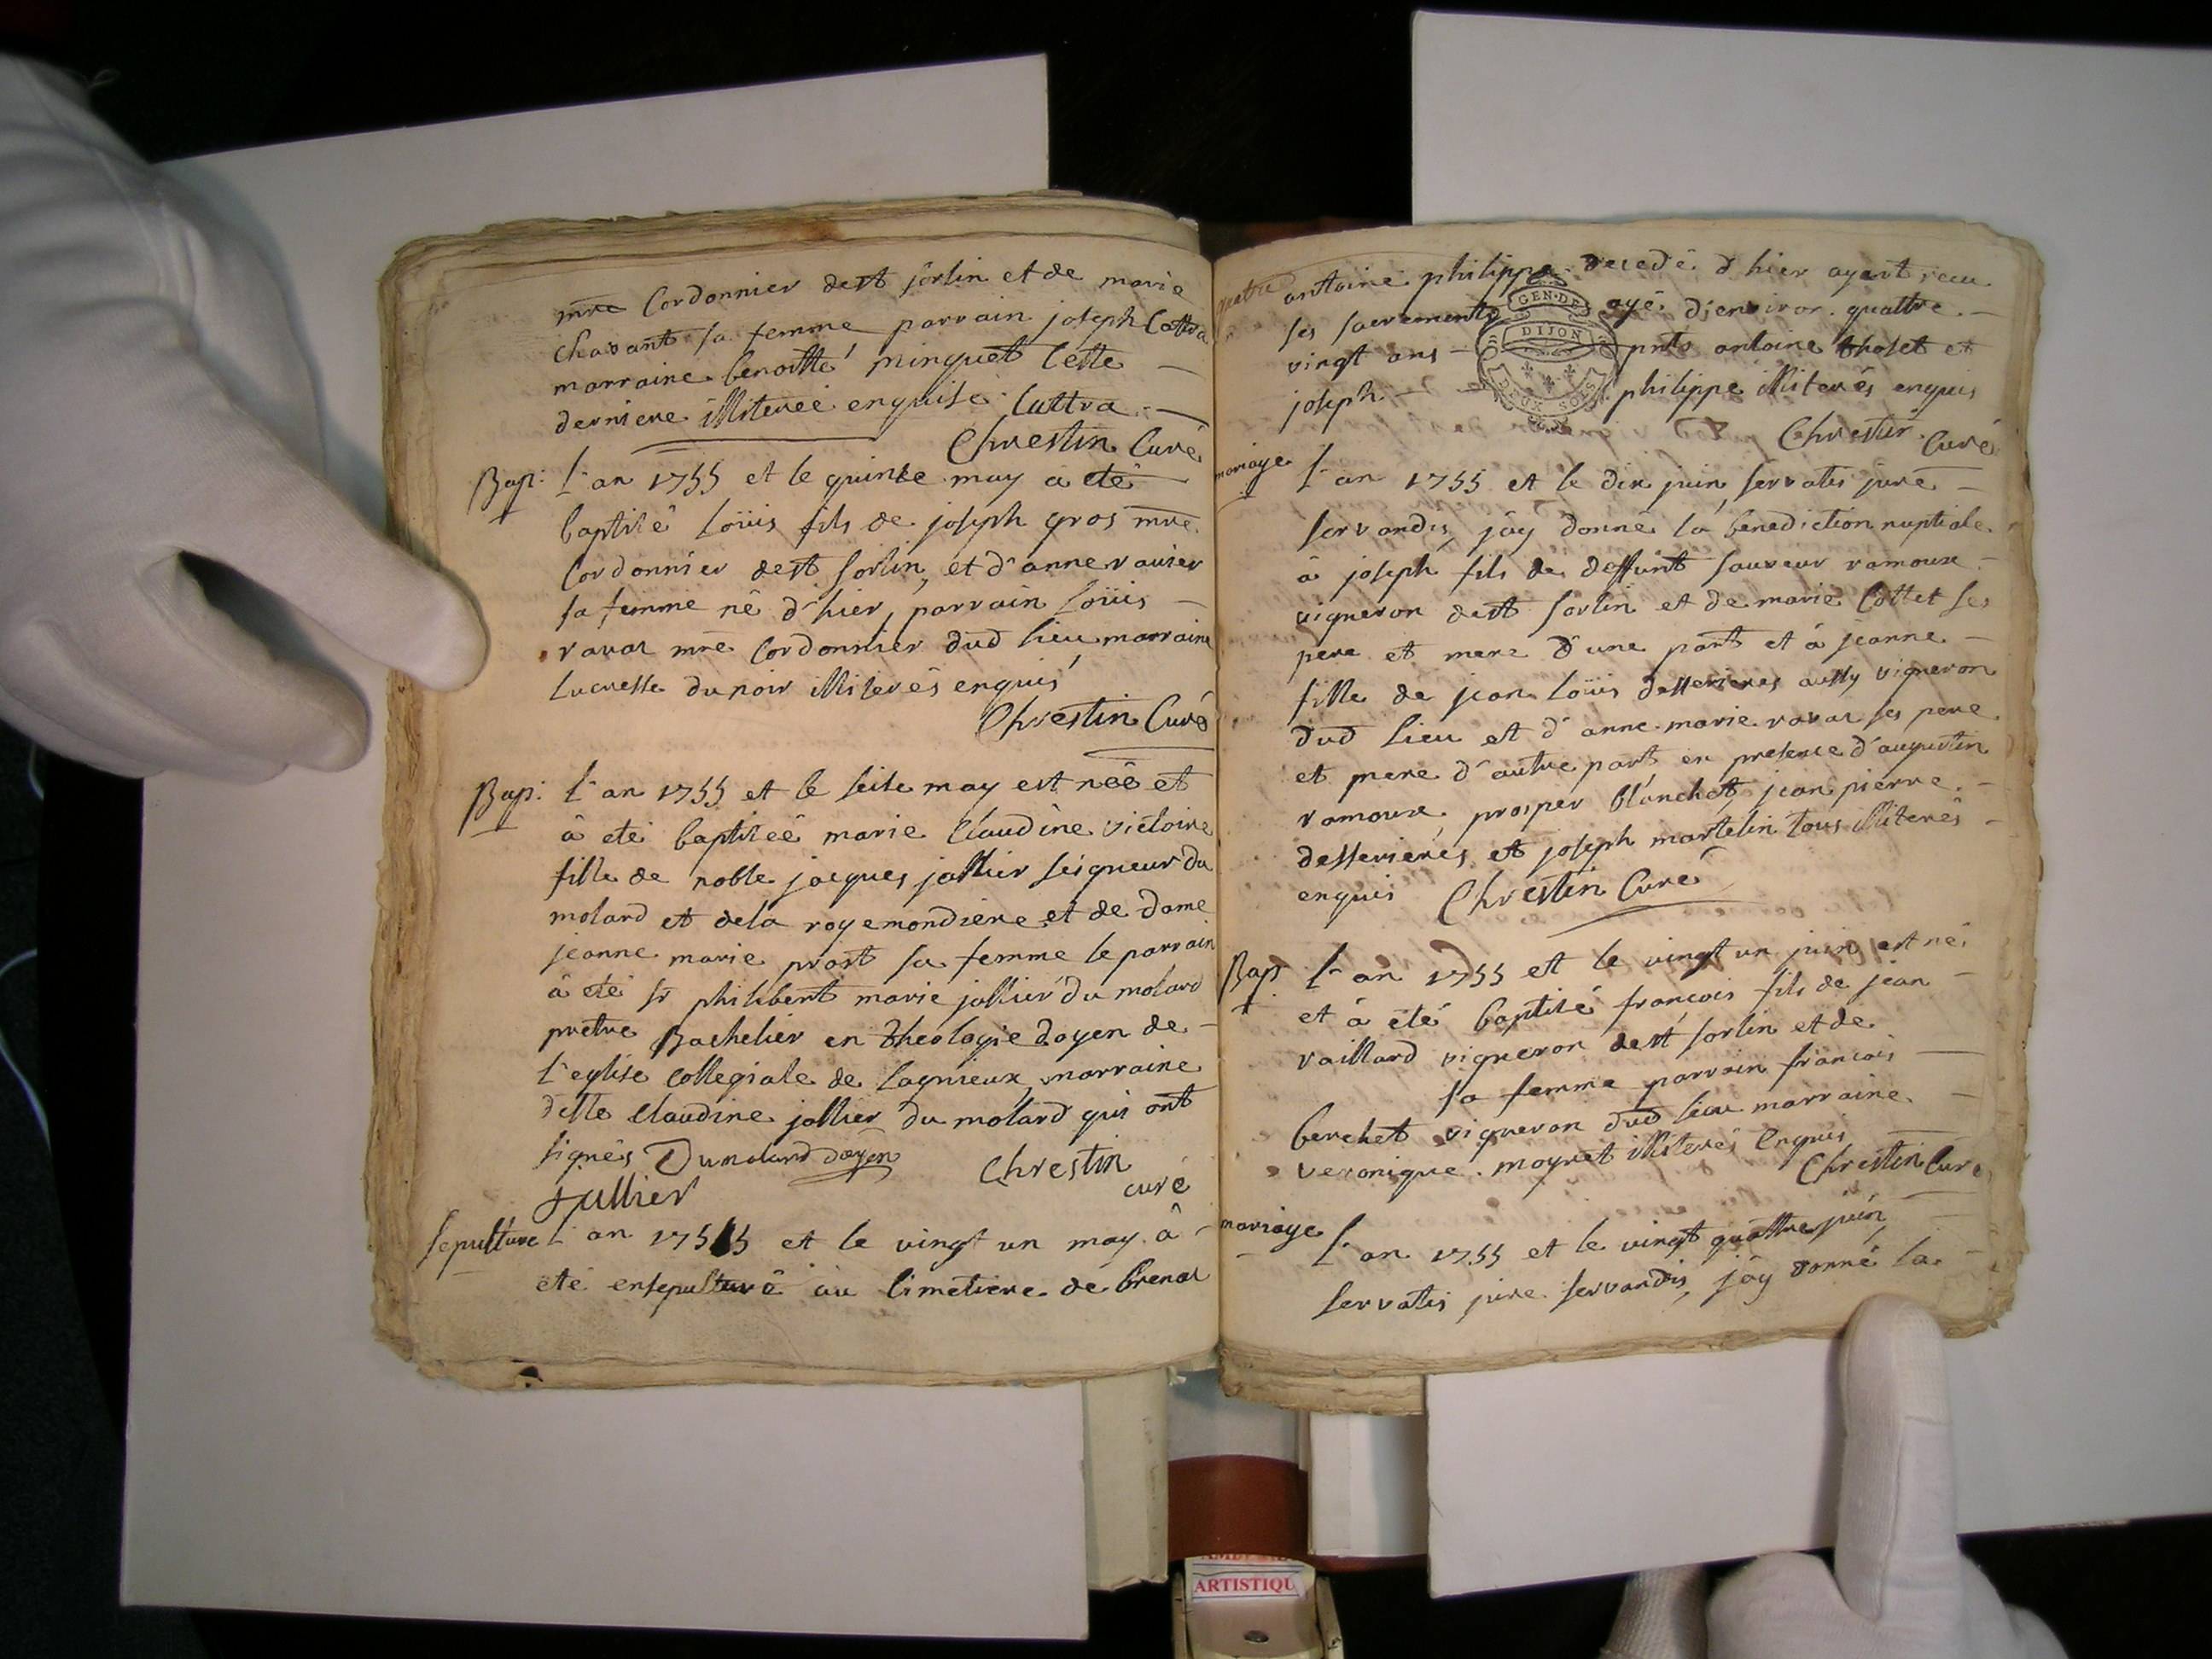 mre Cordonnier de st sorlin et de marie
chavant sa femme parrain joseph Cottra
marraine benoitte minguet Cette
derniere illiterée enquise. Cottra.
Chrestin Curé
Bap: L'an 1755 et le quinse may a eté
baptisé Loüis fils de joseph gros mre
Cordonnier de st sorlin, et d'anne ravier
sa femme né d'hier, parrain Loüis
ravat mre Cordonnier dud lieu, marraine
Lucresse dunoir illiterés enquis
Chrestin Curé
Bap: L'an 1755 et le seise may est néé et
â eté baptiseé marie Claudine victoire
fille de noble jacques jollier seigneur du
molard et dela royemondiere et de dame
jeanne marie prost sa femme le parrain
â eté sr philibert marie jollier du molard
pretre Bachelier en theologie doyen de
l'eglise Collegiale de Lagnieux, marraine
delle Claudine jollier du molard qui ont
signés Dumolard doyen Chrestin
Jullier curé
sepulture L'an 1755 et le vingt un may â
eté ensepulturé au Cimetiere de brenas
antoine philippe decedé d'hier ayant reçu
ses sacrements agé d'environ quattre
vingt ans pnts antoine thoset et
joseph philippe illiterés enquis
GEN·DE
DIJON
DEUX SOLS
Chrestin Curé
mariage L'an 1755 et le dix juin, servatis jure
servandis, jäy donné la benediction nuptiale
â joseph fils de deffunt sauveur ramoux
vigneron de st sorlin et de marie Cottet ses
pere et mere d'une part et à jeanne
fille de jean Loüis desserieres aussy vigneron
dud lieu et d'anne marie ravat ses pere
et mere d'autre part en presence d'augustin
ramoux, prosper blanchet, jean pierre
desserieres et joseph martelin tous illiterés
enquis Chrestin Curé
Bap L'an 1755 et le vingt un juin est né
et â été baptisé françois fils de jean
vaillard vigneron de st sorlin et de
sa femme parrain françois
berchet vigneron dud lieu marraine
veronique moyret illiterés Enquis
Chrestin Curé
mariage L'an 1755 et le vingt quattre juin,
servatis jure servandis, jäy donné la